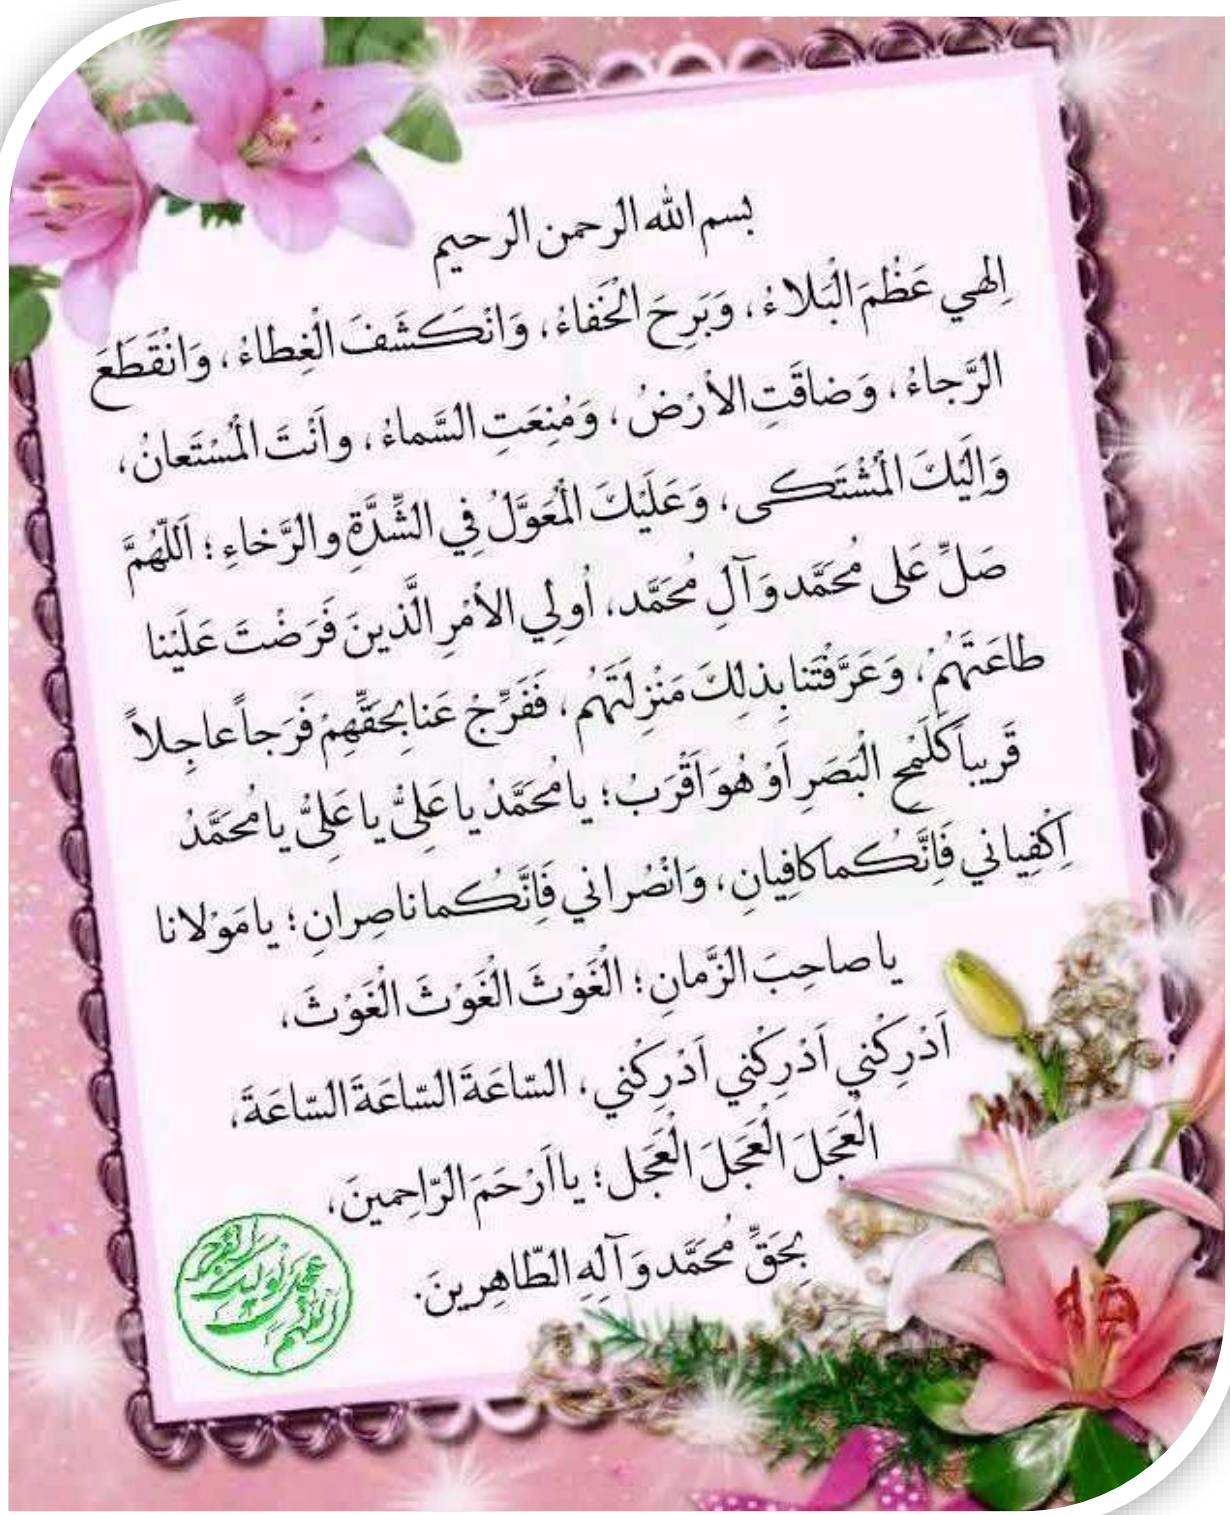 بسم الله الرحمن الرحيم
اِلهي عَظُمَ الْبَلاءُ، وَبَرِحَ الْخَفاءُ، وَانْكَشَفَ الْغِطاءُ، وَانْقَطَعَ
الرَّجاءُ، وَضاقَتِ الاَرْضُ، وَمُنِعَتِ السَّماءُ، واَنْتَ الْمُسْتَعانُ،
وَاِلَيْكَ الْمُشْتَكى، وَعَلَيْكَ الْمُعَوَّلُ فِي الشِّدَّةِ والرَّخاءِ؛ اَللّهُمَّ
صَلِّ عَلى مُحَمَّد وَآلِ مُحَمَّد، اُولِي الاَمْرِ الَّذينَ فَرَضْتَ عَلَيْنا
طاعَتَهُمْ، وَعَرَّفْتَنا بِذلِكَ مَنْزِلَتَهُم، فَفَرِّجْ عَنا بِحَقِّهِمْ فَرَجاً عاجِلاً
قَريباً كَلَمْحِ الْبَصَرِ اَوْ هُوَ اَقْرَبُ؛ يا مُحَمَّدُ يا عَلِيُّ يا عَلِيُّ يا مُحَمَّدُ
اِكْفِياني فَاِنَّكُما كافِيانِ، وَانْصُراني فَاِنَّكُما ناصِرانِ؛ يا مَوْلانا
يا صاحِبَ الزَّمانِ؛ الْغَوْثَ الْغَوْثَ الْغَوْثَ،
اَدْرِكْني اَدْرِكْني اَدْرِكْني، السّاعَةَ السّاعَةَ السّاعَةَ،
الْعَجَلَ الْعَجَلَ الْعَجَل؛ يا اَرْحَمَ الرّاحِمينَ،
بِحَقِّ مُحَمَّد وَآلِهِ الطّاهِرينَ.
اللهم عجل لوليك الفرج